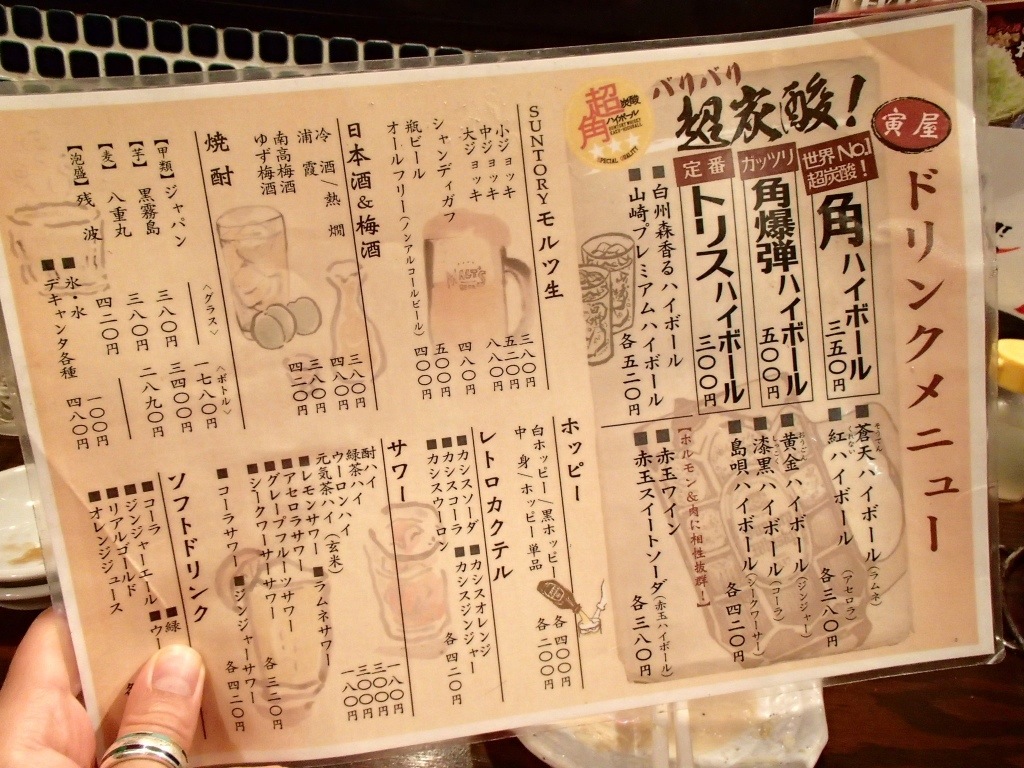 寅屋
ドリンクメニュー
バリバリ
超炭酸!
超角
炭酸
ハイボール
SPECIAL QUALITY
世界No.1
超炭酸!
角ハイボール
三五〇円
ガッツリ
角爆弾ハイボール
五〇〇円
定番
トリスハイボール
三〇〇円
■白州森香るハイボール
■山崎プレミアムハイボール
各五二〇円
■蒼天ハイボール(ラムネ)
そうてん
■紅ハイボール(アセロラ)
くれない
各三八〇円
■黄金ハイボール(ジンジャー)
おうごん
■漆黒ハイボール(コーラ)
しっこく
■島唄ハイボール(シークワーサー)
各四二〇円
【ホルモン&肉に相性抜群!】
■赤玉ワイン
■赤玉スイートソーダ(赤玉ハイボール)
各三八〇円
SUNTORYモルツ生
小ジョッキ 三八〇円
中ジョッキ 五二〇円
大ジョッキ 八八〇円
シャンディガフ 四八〇円
瓶ビール 五〇〇円
オールフリー(ノンアルコールビール) 四〇〇円
日本酒&梅酒
冷酒/熱燗 三八〇円
浦霞 四八〇円
南高梅酒 三八〇円
ゆず梅酒 四二〇円
焼酎
〈グラス〉
〈ボトル〉
【甲類】ジャパン 三八〇円 一七八〇円
【芋】黒霧島 三八〇円 三四〇〇円
【麦】八重丸 三八〇円 二八九〇円
【泡盛】残波 四二〇円
■氷・水 一〇〇円
■デキャンタ各種 四八〇円
ホッピー
白ホッピー/黒ホッピー 各四〇〇円
中身/ホッピー単品 各二〇〇円
レトロカクテル
■カシスソーダ ■カシスオレンジ
■カシスコーラ ■カシスジンジャー
■カシスウーロン
各四二〇円
サワー
酎ハイ 一八〇円
緑茶ハイ 三〇〇円
ウーロンハイ 三〇〇円
元気茶ハイ(玄米) 一八〇円
■レモンサワー ■ラムネサワー
■アセロラサワー
■グレープフルーツサワー
■シークワーサーサワー
各三二〇円
■コーラサワー ■ジンジャーサワー
各四二〇円
ソフトドリンク
■コーラ ■緑
■ジンジャーエール ■ウ
■リアルゴールド
■オレンジジュース
各